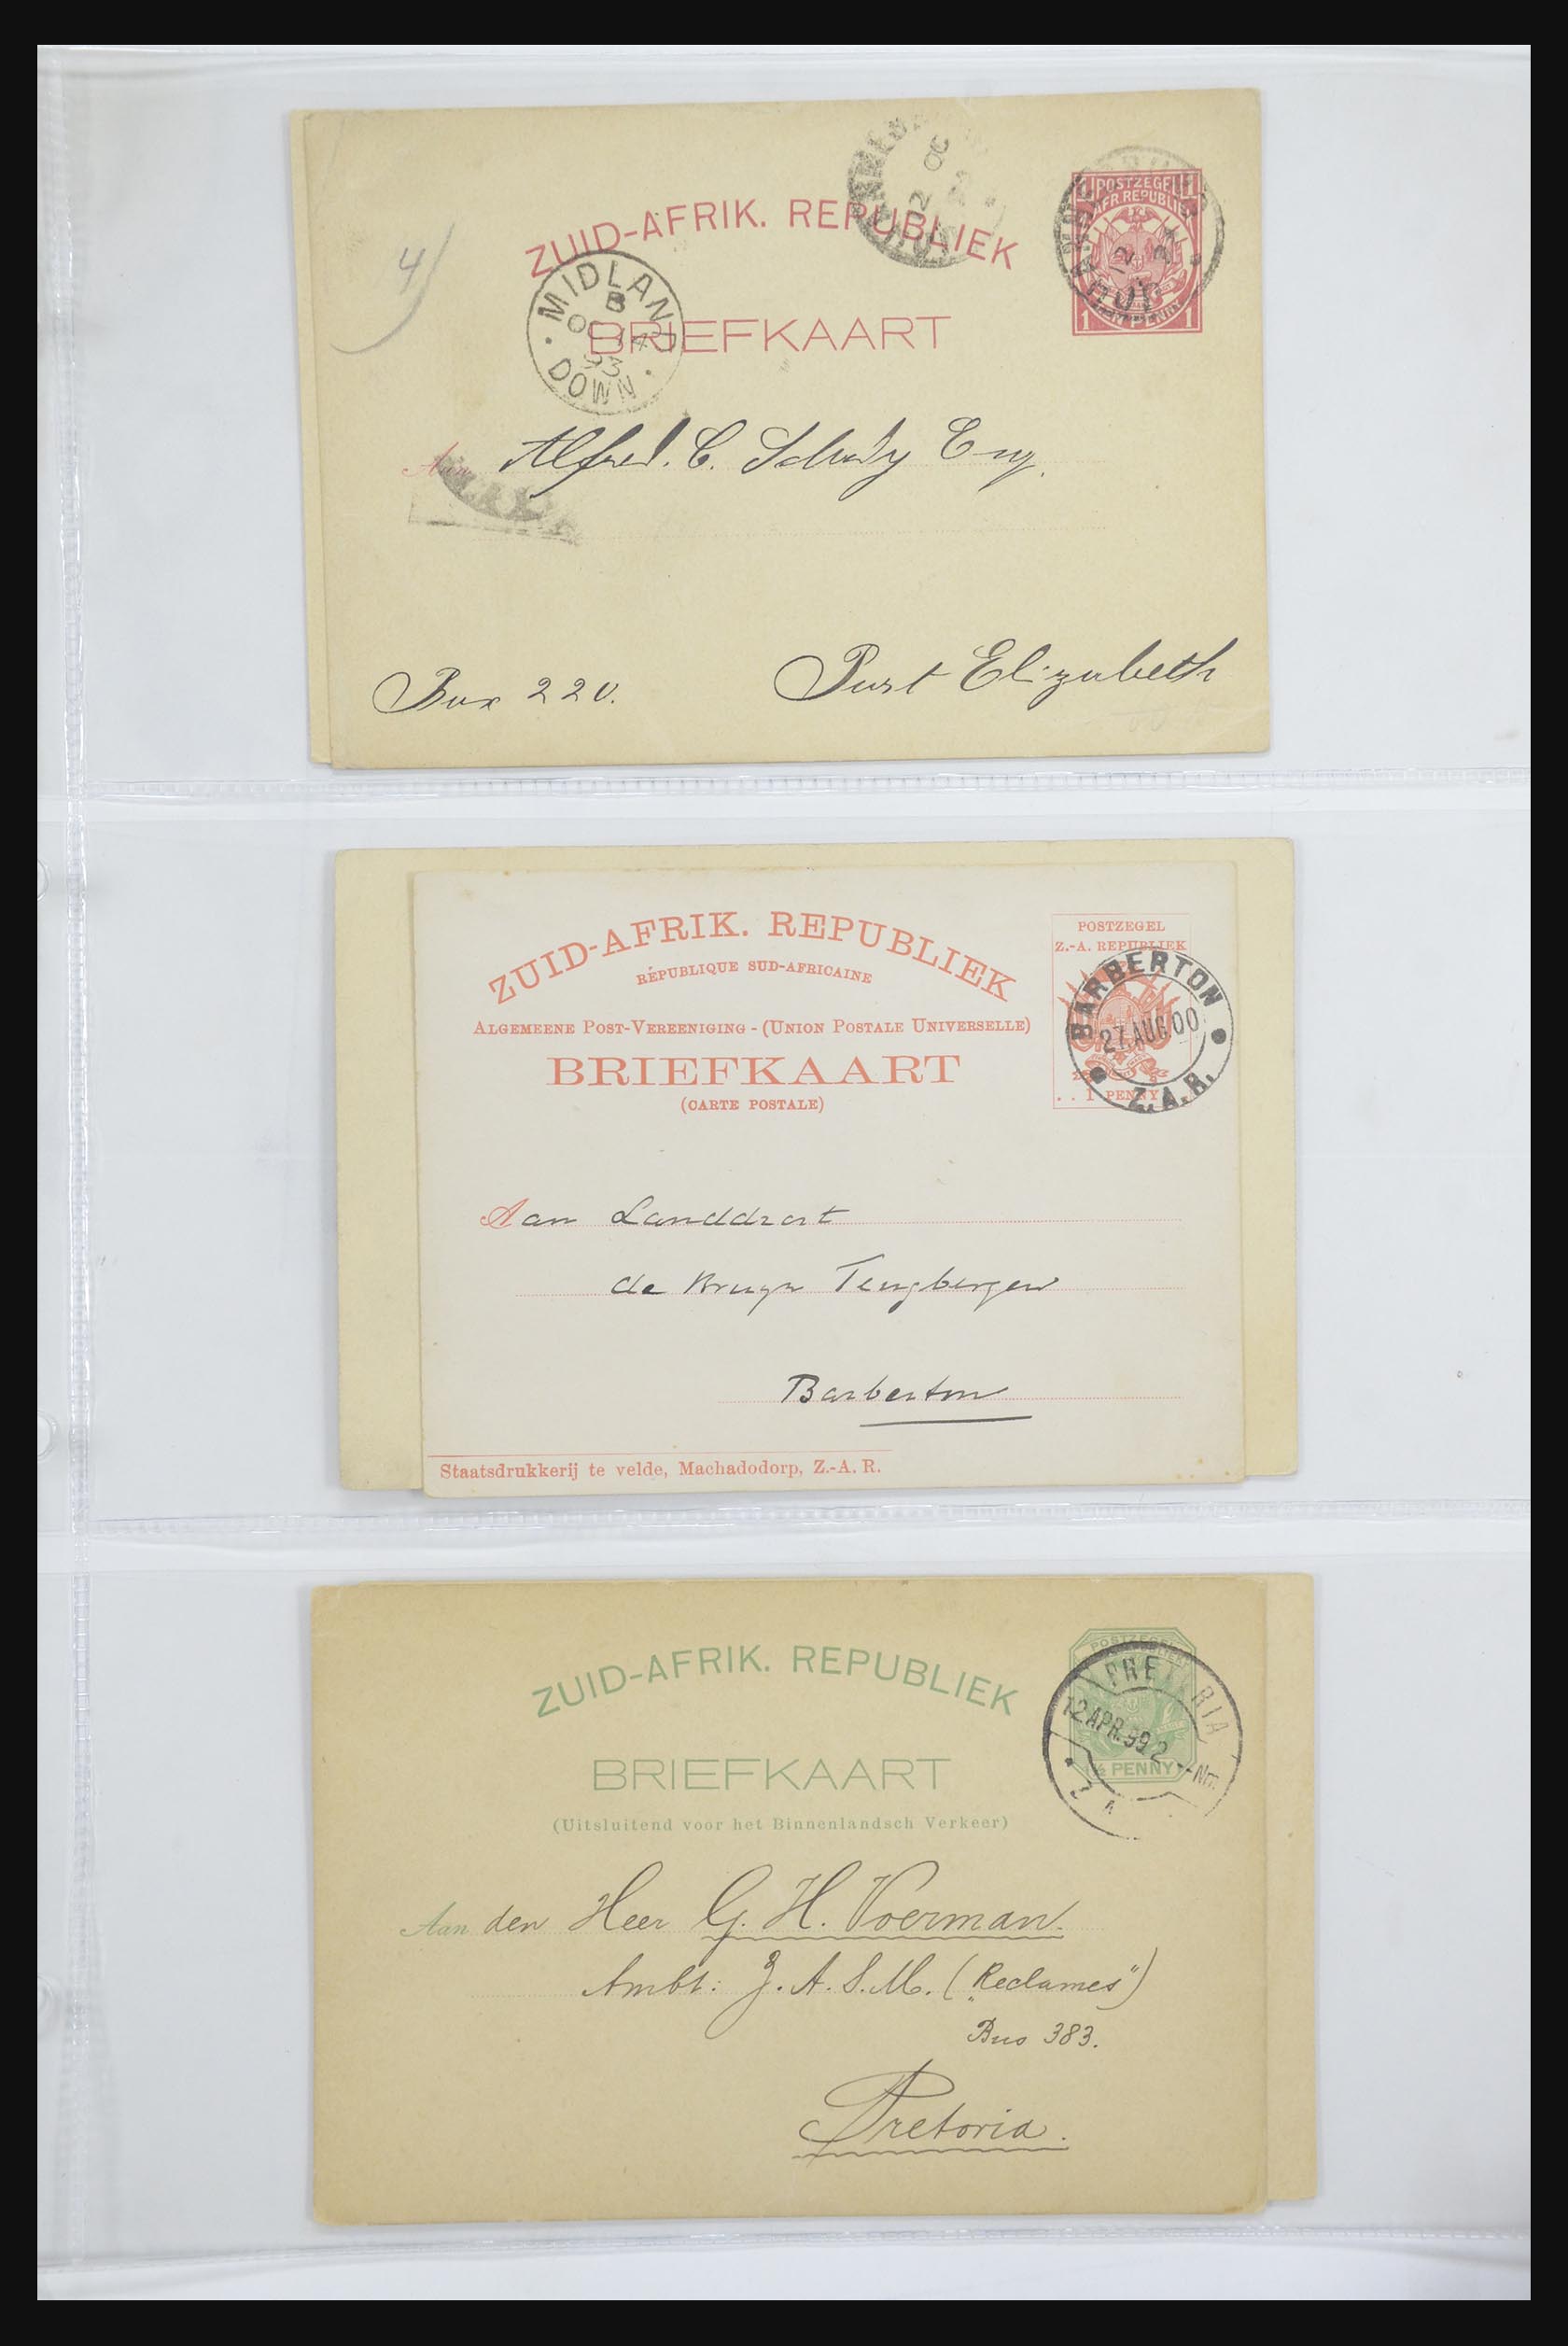 ZUID-AFRIK. REPUBLIEK
POSTZEGEL
AFR REPUBLIEK
PENNY
1 1
4/
MIDLAND
B
OC 14
93
DOWN
BRIEFKAART
Aan Alfred. C. Esq.
Box 220. Port Elizabeth
ZUID-AFRIK. REPUBLIEK
RÉPUBLIQUE SUD-AFRICAINE
ALGEMEENE POST-VEREENIGING - (UNION POSTALE UNIVERSELLE)
BRIEFKAART
(CARTE POSTALE)
POSTZEGEL
Z.-A. REPUBLIEK
. . 1 PENNY
BARBERTON
27.AUG.00
Z.A.R.
Aan Landdrost
de Bruyn Tengbergen
Barberton
Staatsdrukkerij te velde, Machadodorp, Z.-A. R.
ZUID-AFRIK. REPUBLIEK
BRIEFKAART
(Uitsluitend voor het Binnenlandsch Verkeer)
POSTZEGEL
½ PENNY
PRETORIA
12 APR.99 2 --Nm.
Z A
Aan den Heer G. H. Voerman.
Ambt: Z. A. S. M. („Reclames")
Bus 383.
Pretoria.